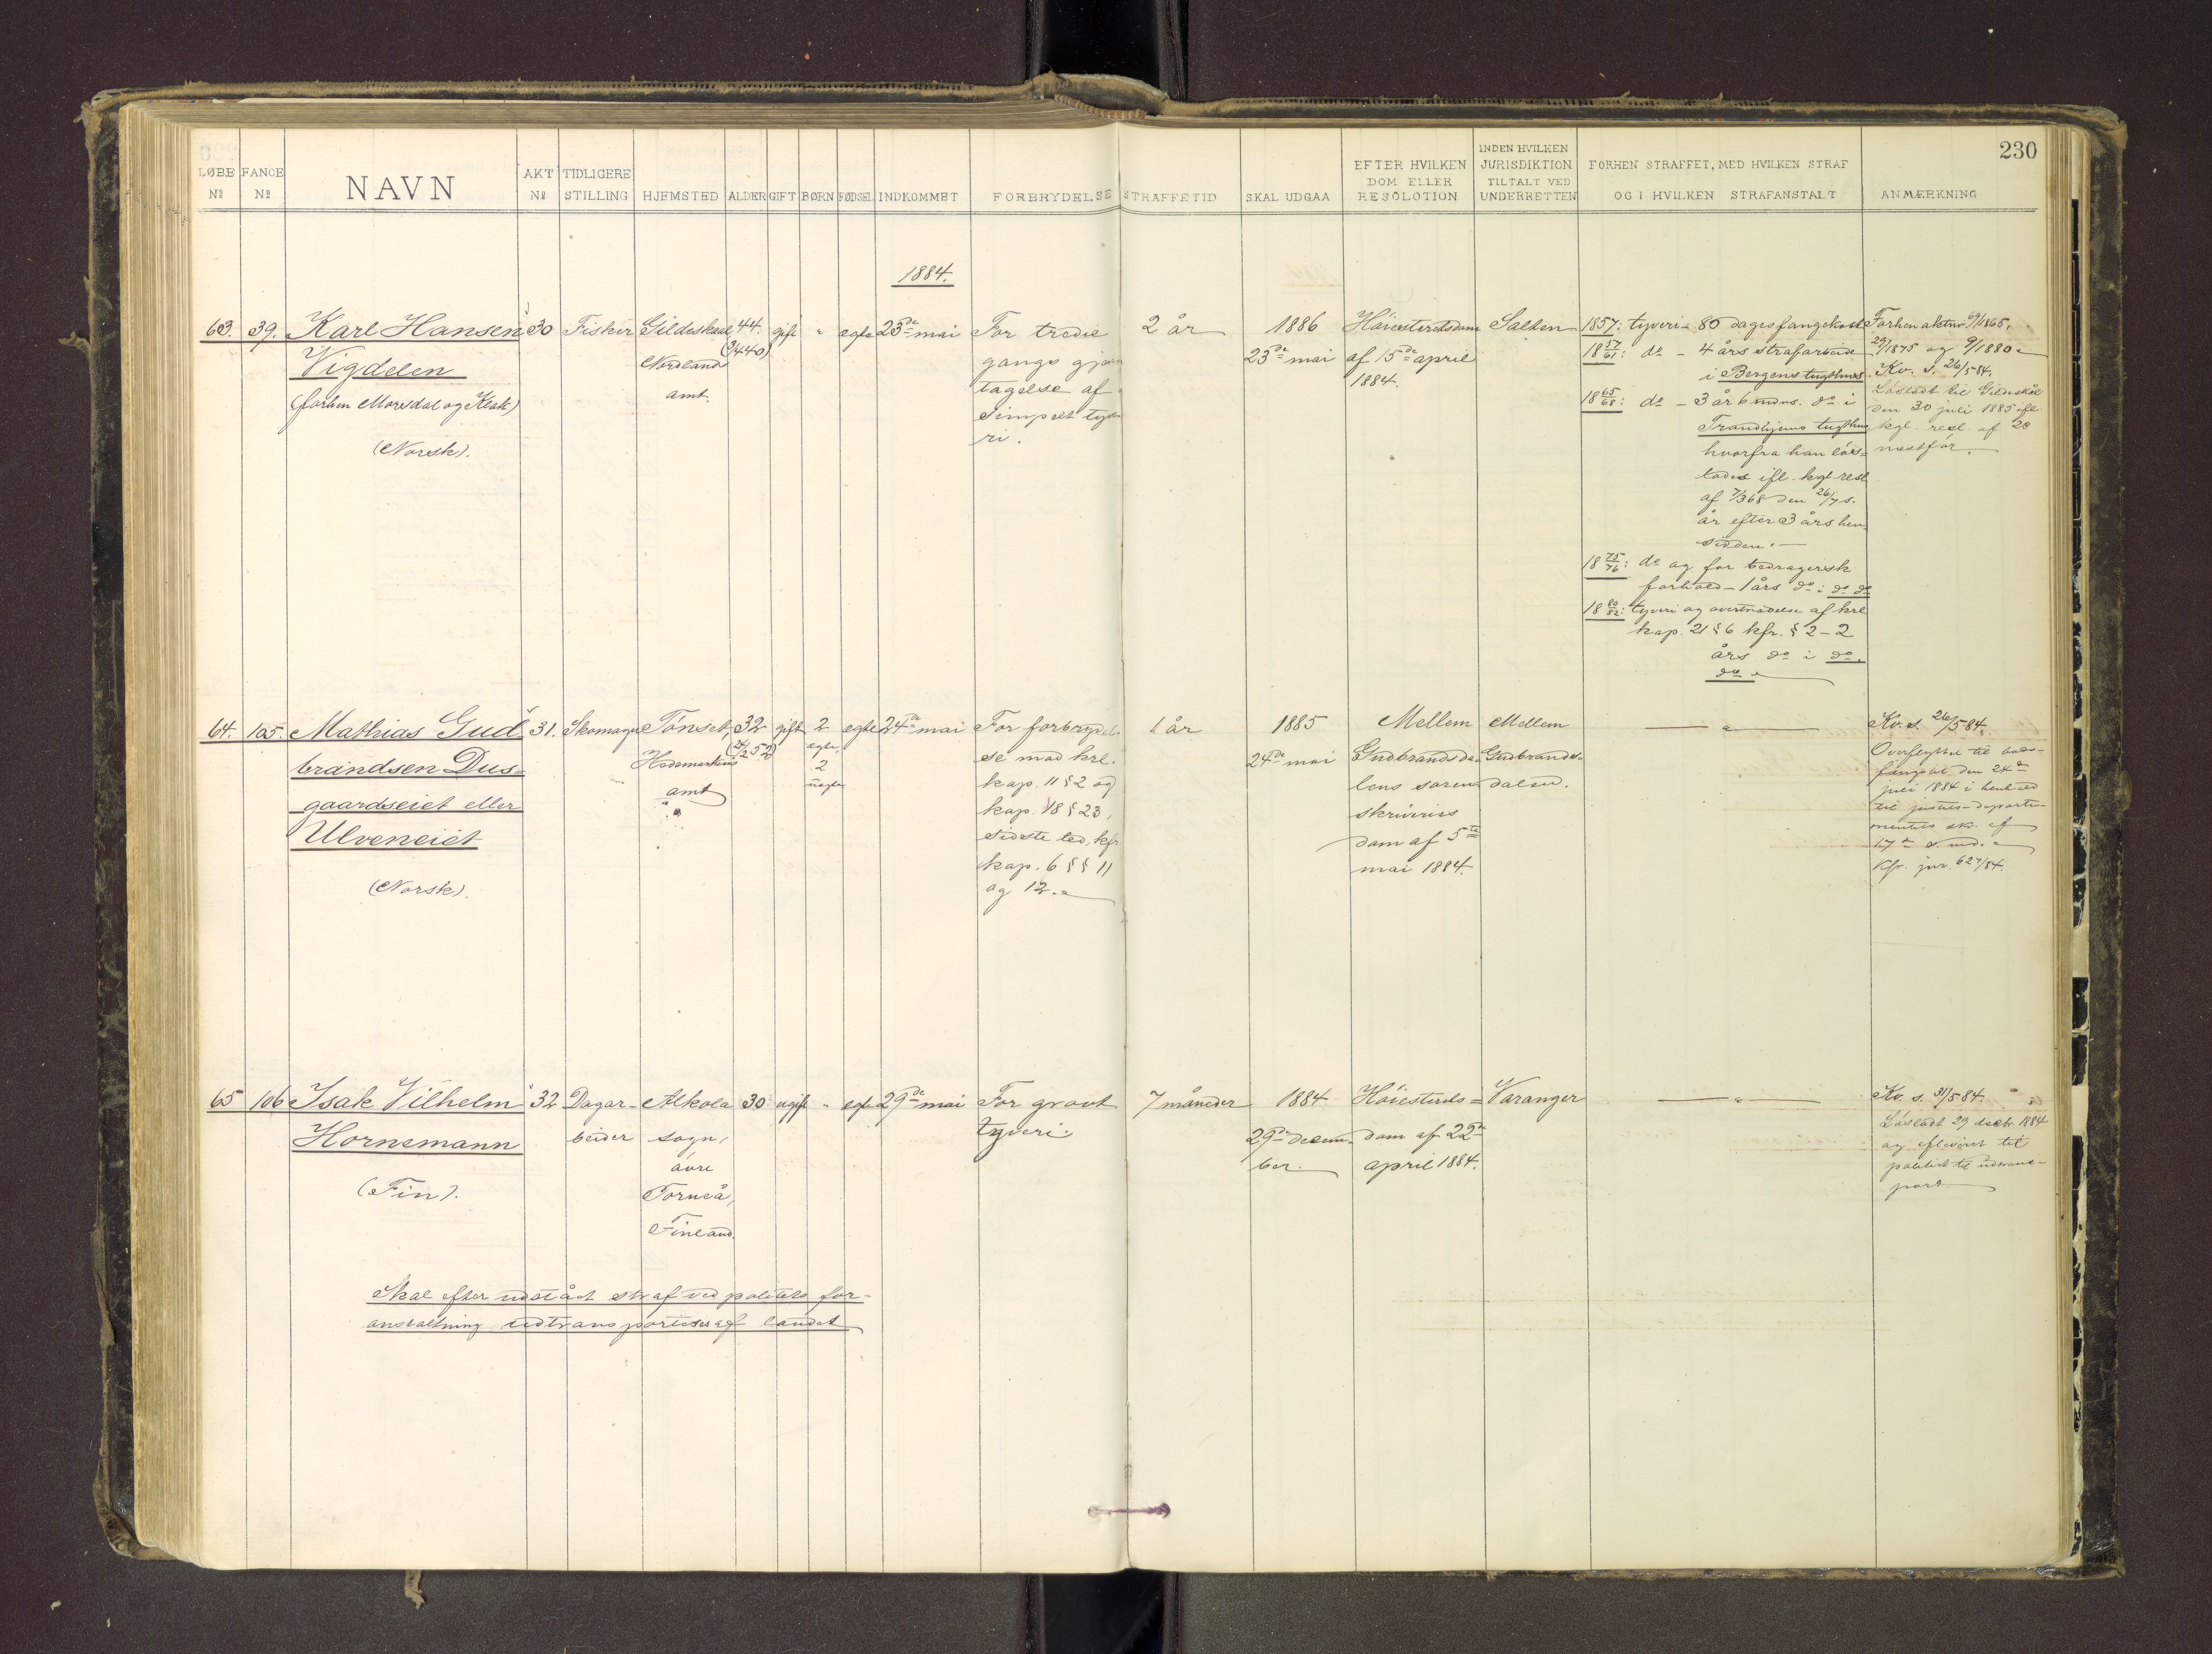 230
LØBE Nº
FANGE Nº
NAVN
AKT Nº
TIDLIGERE STILLING
HJEMSTED
ALDER
GIFT
BØRN
FØDSEL
INDKOMMET
FORBRYDELSE
STRAFFETID
SKAL UDGAA
EFTER HVILKEN DOM ELLER RESOLOTION
INDEN HVILKEN JURISDIKTION TILTALT VED UNDERRETTEN
FORHEN STRAFFET, MED HVILKEN STRAF OG I HVILKEN STRAFANSTALT
ANMÆRKNING
1884.
63.
39.
Karl Hansen
Vigdelen
(forhen Morsdal og Kleik)
(Norsk).
30
Fisker
Gildeskaal
Nordland
amt.
44.
(3/4 40)
gift
"
egte
23de mai
For tredie
gangs gjen
tagelse af
simpelt tyve
ri.
2 år
1886
23de mai
Höiesteretsdom
af 15de april
1884.
Salten
1857: tyveri - 80 dages fangekost
18 57/61: do - 4 års strafarbeide
i Bergens tugthus
18 65/68: do - 3 år 6 mdrs. do i
Trondhjems tugthus
hvorfra han løs=
lades ifl. kgl. resl
af 7/3 68 den 26/7 s.
år efter 3 års hen
sidden. -
18 75/76: do og for bedragersk
forhold - 1 års do i do do
18 80/82: tyveri og overtrædelse af krl
kap. 21 § 6 kfr. § 2 - 2
års do i do.
do.
Forhen aktnr 69/1865,
29/1875 og 9/1880.
Kv. s. 26/5 84.
Lösladt til Gildeskål
den 30 juli 1885 ifl.
kgl. resl af 28
næstför.
64.
105.
Mathias Gud
brandsen Dus=
gaardseiet eller
Ulveneiet
(Norsk).
31.
Skomager
Tönset,
Hedemarkens
amt
" "
32
(24/2 52)
gift
2
egte.
2
uegte
egte
24de mai
For forbrydel
se mod krl.
kap. 11 § 2 og
kap. 18 § 23,
sidste led, kfr
kap. 6 § § 11
og 12.
1 år
1885
24de mai
Mellem
Gudbrandsda=
lens soren
skriveries
dom af 5te
mai 1884.
Mellem
Gudbrands=
dalen.
"
Kv. s. 26/5 84.
Overflyttet til bods-
fængslet den 24de
juli 1884 i henhold
til justits-departe-
mentets skr. af
17de s. md.
Kfr. jur. 627/84.
65
106
Isak Vilhelm
Hornemann
(Fin).
32
Dagar-
beider
Alkola
sogn,
övre
Torneå,
Finland.
30
ugift
"
egte
29de mai
For grovt
tyveri.
7 måneder
1884
29de decem-
ber.
Höiesterets=
dom af 22de
april 1884.
Varanger
"
Kv. s. 31/5 84.
Lösladt 29 decbr. 1884
og afleveret til
politiet til udtrans-
port.
Skal efter udstået straf ved politiets for-
anstaltning udtransporteres af landet